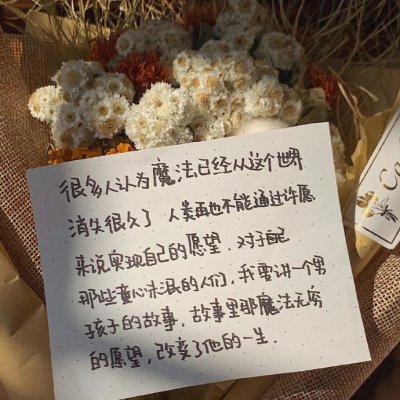 很多人认为魔法已经从这个世界
消失很久了 人类再也不能通过许愿
来说实现自己的愿望. 对于
那些童心未泯的人们, 我要讲一个男
孩子的故事, 故事里那魔法无穷
的愿望, 改变了他的一生.